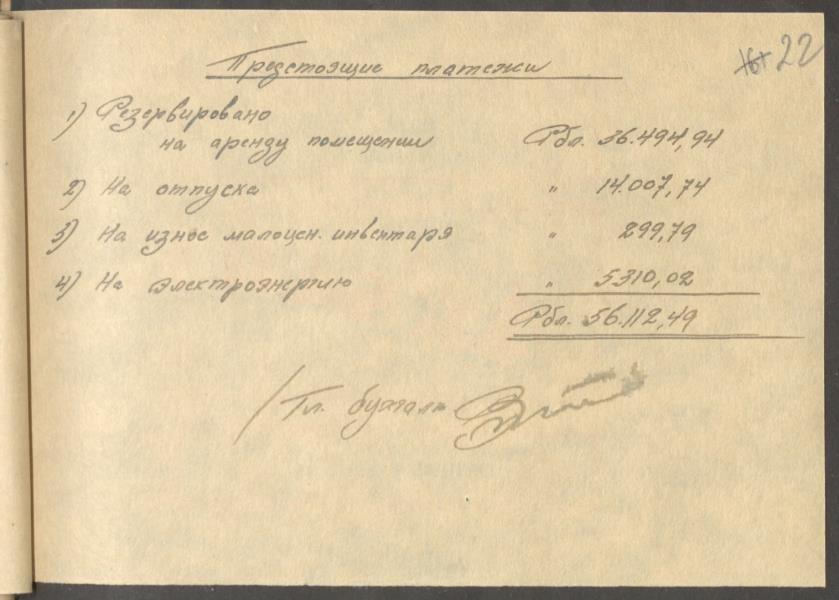 22
Предстоящие платежи
1) Резервировано
на аренду помещении Рбл. 36.494,94
2) На отпуска " 14.007,74
3) На износ малоцен. инвентаря " 299,79
4) На электроэнергию " 5310,02
Рбл. 56.112,49
/Гл. бухгалт